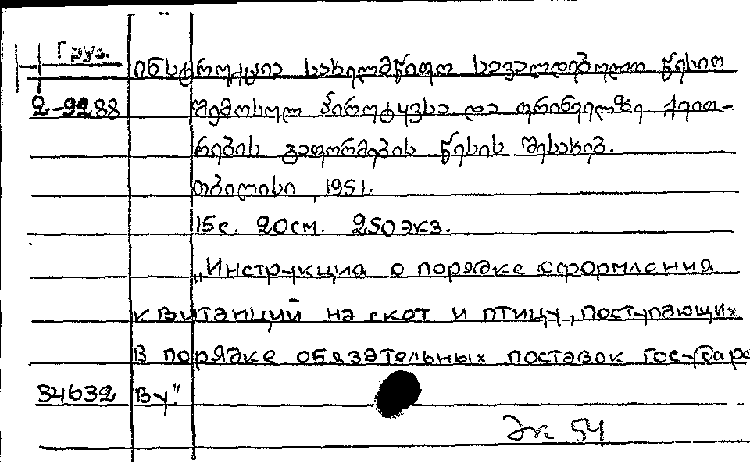 Груз.
ინსტრუქცია სახელმწიფო სავალდებულო წესით
2-9288 შემოსულ პირუტყვსა და ფრინველზე ქვით-
რების გაფორმების წესის შესახებ.
თბილისი, 1951.
15 с. 20 см. 250 экз.
„Инструкция о порядке оформления
квитанций на скот и птицу, поступающих
в порядке обязательных поставок госудare
34632 ву."
Эк 54